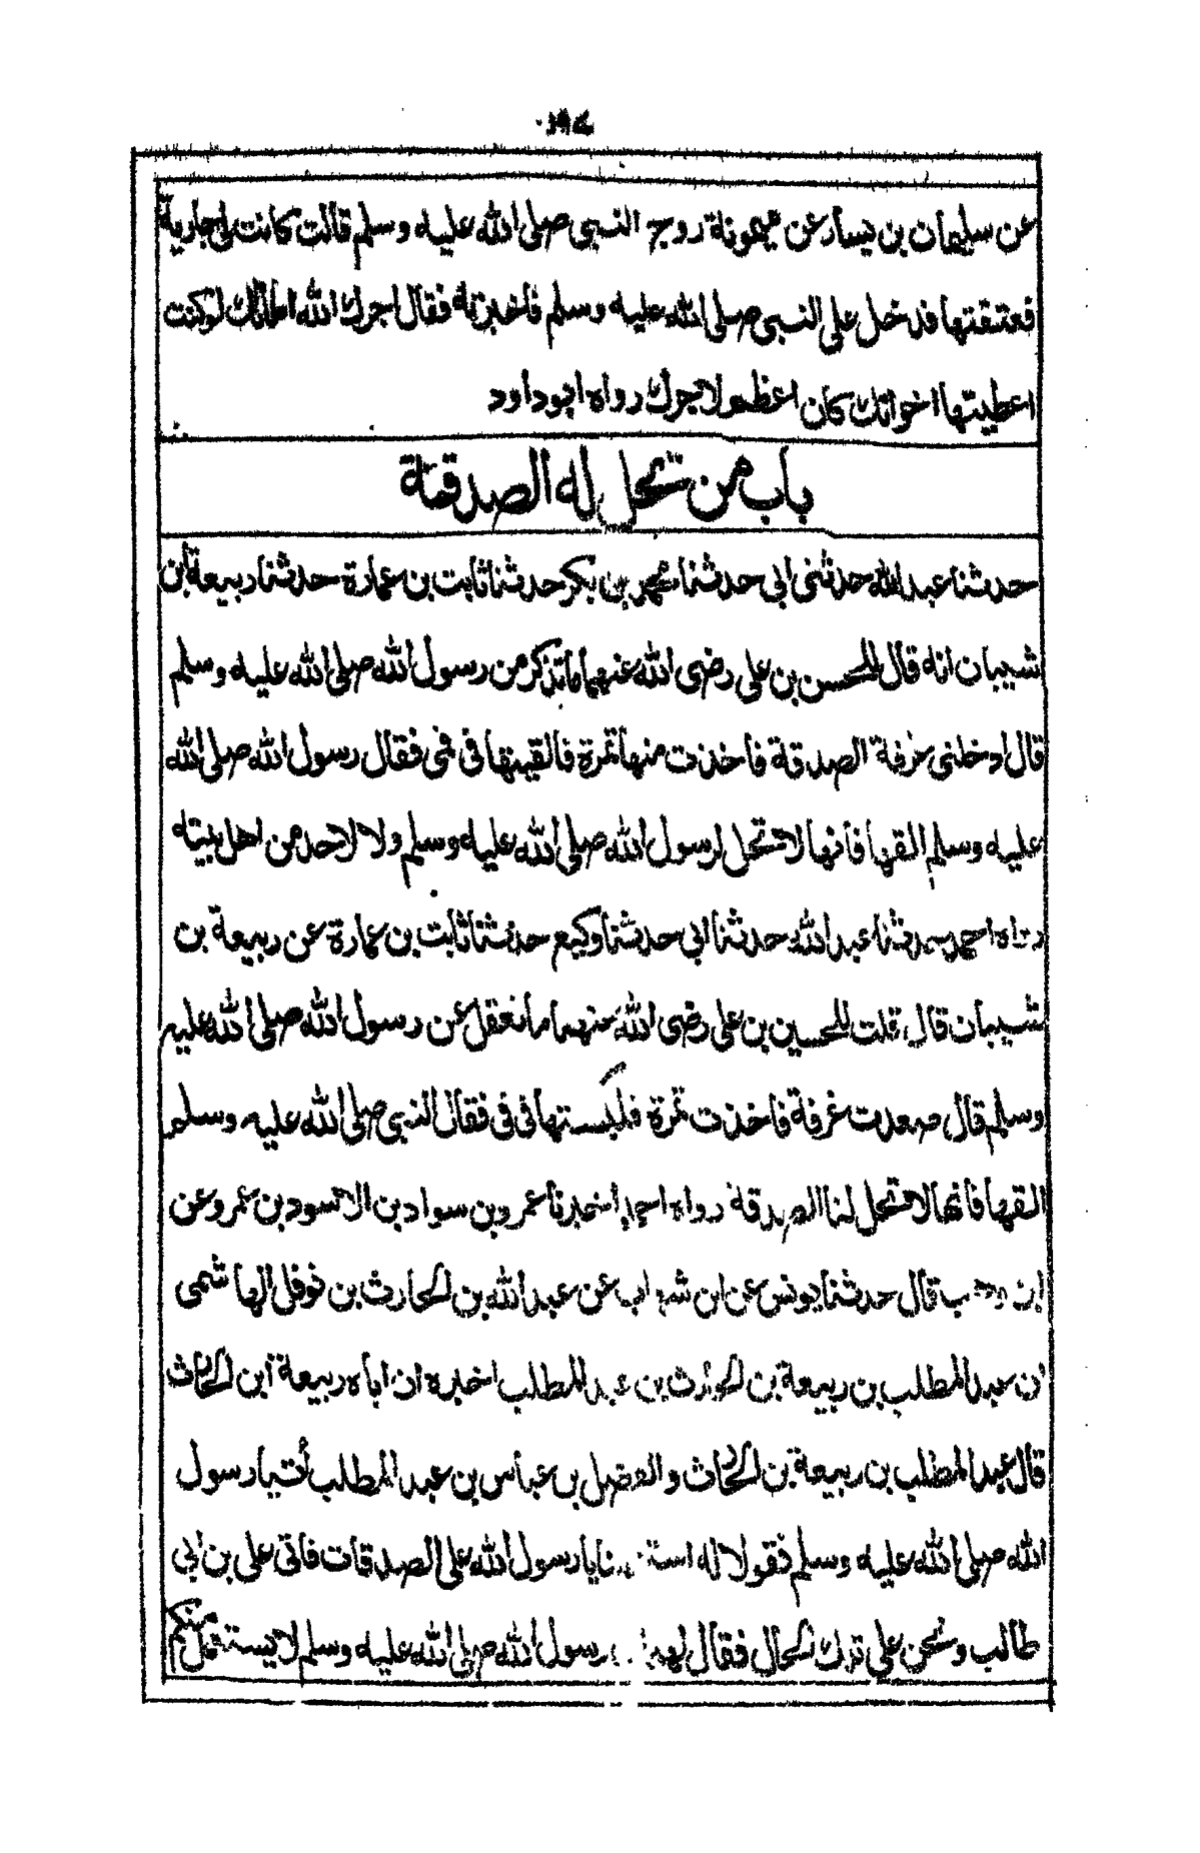 عن سليمان بن يسار عن ميمونة زوج النبى صلى الله عليه وسلم قالت كانت لى جارية
فعتقتها فدخل على النبى صلى الله عليه وسلم فاخبرته فقال اجرك الله اما انك لو كنت
اعطيتها اخوالك كان اعظم لاجرك رواه ابو داود
باب من تحل له الصدقة
حدثنا عبد الله حدثنى ابى حدثنا محمد بن بكر حدثنا ثابت بن عمارة حدثنا ربيعة بن
شيبان انه قال للحسن بن على رضى الله عنهما ما تذكر من رسول الله صلى الله عليه وسلم
قال ادخلنى غرفة الصدقة فاخذت منها تمرة فالقيتها فى فمى فقال رسول الله صلى الله
عليه وسلم القها فانها لا تحل لرسول الله صلى الله عليه وسلم ولا لاحد من اهل بيته
رواه احمد حدثنا عبد الله حدثنا ابى حدثنا وكيع حدثنا ثابت بن عمارة عن ربيعة بن
شيبان قال قلت للحسين بن على رضى الله عنهما ما تعقل عن رسول الله صلى الله عليه
وسلم قال صعدت غرفة فاخذت تمرة فلكستها فى فى فقال النبى صلى الله عليه وسلم
القها فانها لا تحل لنا الصدقة رواه احمد اخبرنا عمرو بن سواد بن الاسود بن عمرو عن
ابن وهب قال حدثنا يونس عن ابن شهاب عن عبد الله بن الحارث بن نوفل الهاشمى
ان عبد المطلب بن ربيعة بن الحارث بن عبد المطلب اخبره ان اباه ربيعة ابن الحارث
قال عبد المطلب بن ربيعة بن الحارث والفضل بن عباس بن عبد المطلب أتيا رسول
الله صلى الله عليه وسلم فقولا له يا رسول الله على الصدقات فاتى على بن ابى
طالب ونحن على تلك الحال فقال لهما رسول الله صلى الله عليه وسلم لا يستعمل منكم